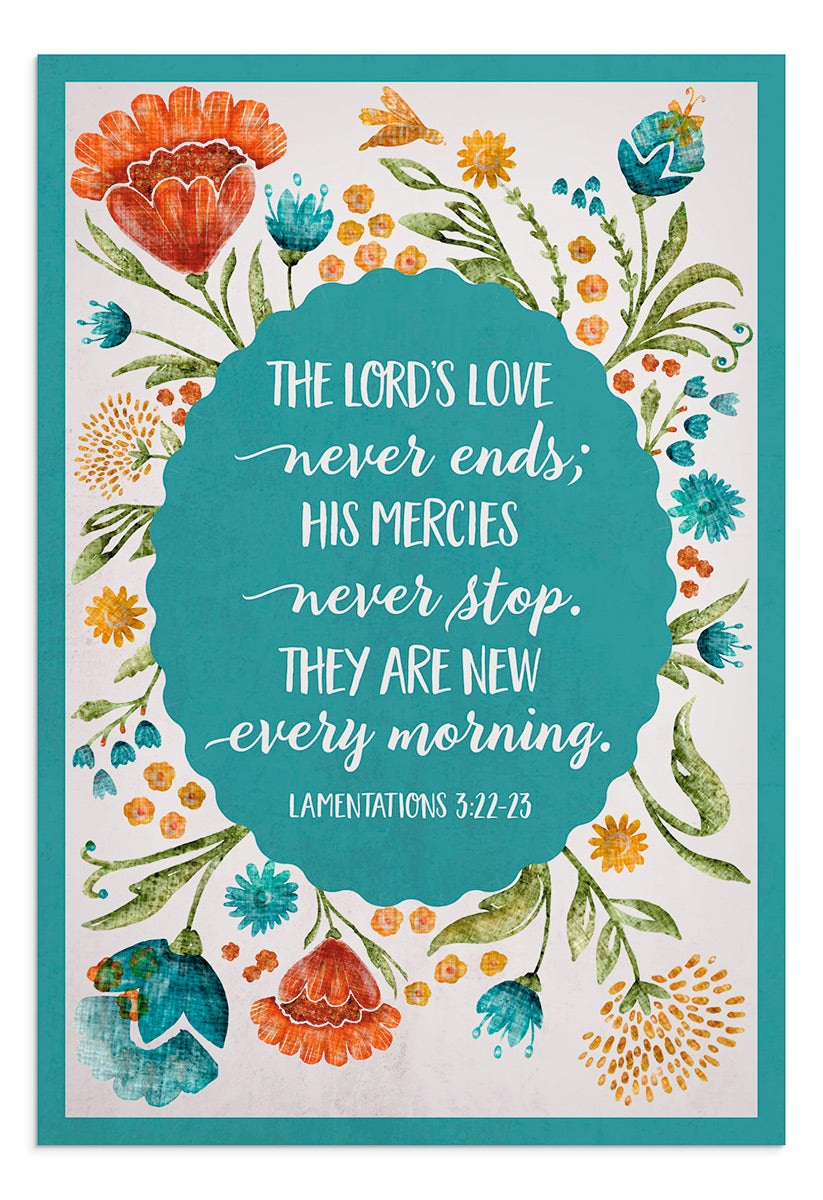 THE LORD'S LOVE
never ends;
HIS MERCIES
never stop.
THEY ARE NEW
every morning.
LAMENTATIONS 3:22-23